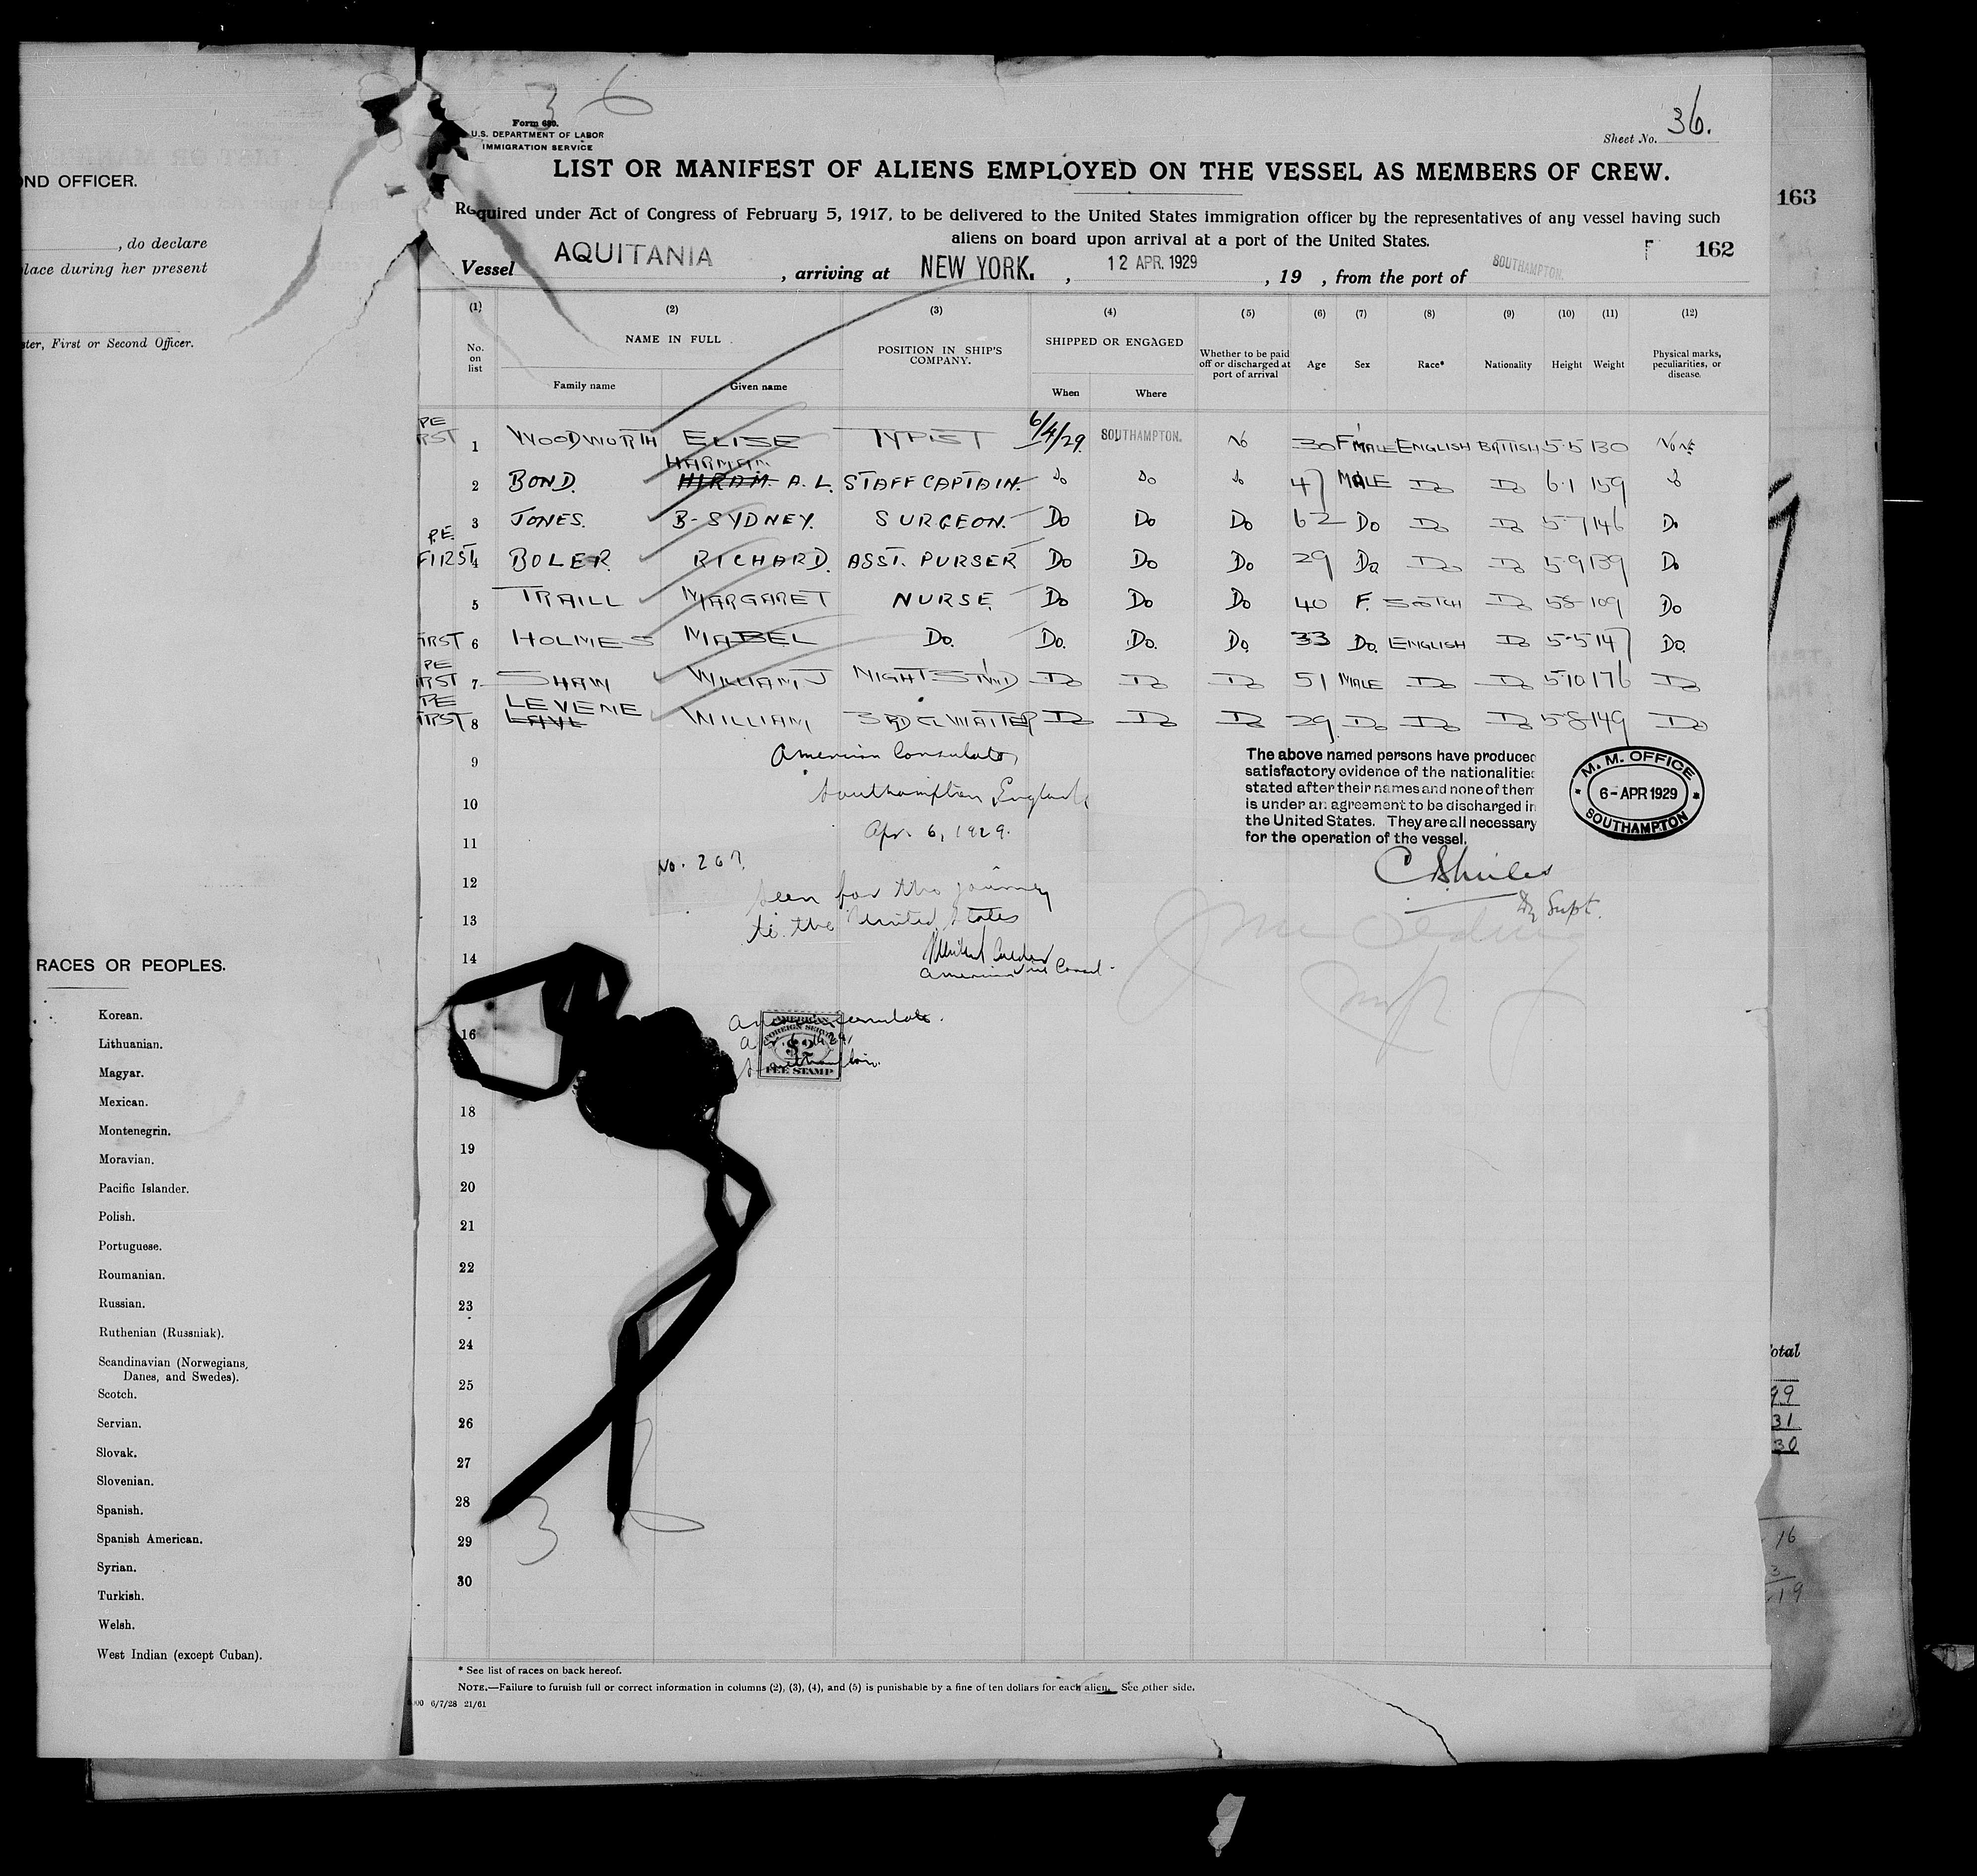 OND OFFICER.
, do declare
lace during her present
ster, First or Second Officer.
RACES OR PEOPLES.
Korean.
Lithuanian.
Magyar.
Mexican.
Montenegrin.
Moravian.
Pacific Islander.
Polish.
Portuguese.
Roumanian.
Russian.
Ruthenian (Russniak).
Scandinavian (Norwegians,
Danes, and Swedes).
Scotch.
Servian.
Slovak.
Slovenian.
Spanish.
Spanish American.
Syrian.
Turkish.
Welsh.
West Indian (except Cuban).
36
Form 680.
U.S. DEPARTMENT OF LABOR
IMMIGRATION SERVICE
Sheet No. 36.
LIST OR MANIFEST OF ALIENS EMPLOYED ON THE VESSEL AS MEMBERS OF CREW.
Required under Act of Congress of February 5, 1917, to be delivered to the United States immigration officer by the representatives of any vessel having such
aliens on board upon arrival at a port of the United States.
162
Vessel AQUITANIA, arriving at NEW YORK., 12 APR. 1929, 19 , from the port of SOUTHAMPTON.
(1) (2) (3) (4) (5) (6) (7) (8) (9) (10) (11) (12)
No. on list NAME IN FULL POSITION IN SHIP'S COMPANY. SHIPPED OR ENGAGED Whether to be paid off or discharged at port of arrival Age Sex Race* Nationality Height Weight Physical marks, peculiarities, or disease.
Family name Given name When Where
PE RST 1 WOODWORTH ELISE TYPIST 6/4/29. SOUTHAMPTON. No 30 FMALE ENGLISH BRITISH 5-5 130 NONE
HARMAN
2 BOND. HIRAM A. L. STAFF CAPTAIN. Do Do Do 47 MALE Do Do 6-1 159 Do
3 JONES. B-SYDNEY. SURGEON. Do Do Do 62 Do Do Do 5-7 146 Do
P.E. FIRST 4 BOLER. RICHARD. ASST. PURSER Do Do Do 29 Do Do Do 5-9 139 Do
5 TRAILL MARGARET NURSE Do Do Do 40 F. SCOTCH Do 5-8 109 Do
FIRST 6 HOLMES MABEL Do. Do. Do. Do. 33 Do. ENGLISH Do 5-5 147 Do.
PE RST 7 SHAW WILLIAM J NIGHT STWD Do Do Do 51 MALE Do Do 5-10 176 Do
PE LEVENE
FIRST 8 WILLIAM 3RD CL WAITER Do Do Do 29 Do Do Do 5-8 149 Do
9
10
11
12
13
14
16
18
19
20
21
22
23
24
25
26
27
28
29
30
American Consulate,
Southampton, England,
Apr. 6, 1929.
No. 267.
Seen for the journey
to the United States
American Vice Consul.
American Consulate.
Apr. 6, 1929.
Southampton.
AMERICAN
FOREIGN SERVICE
$2
FEE STAMP
The above named persons have produced
satisfactory evidence of the nationalities
stated after their names and none of them
is under an agreement to be discharged in
the United States. They are all necessary
for the operation of the vessel.
Dy Supt.
M. M. OFFICE
6 - APR 1929
SOUTHAMPTON
3
* See list of races on back hereof.
NOTE.—Failure to furnish full or correct information in columns (2), (3), (4), and (5) is punishable by a fine of ten dollars for each alien. See other side.
6/7/28 21/61
163
otal
99
31
30
16
3
19